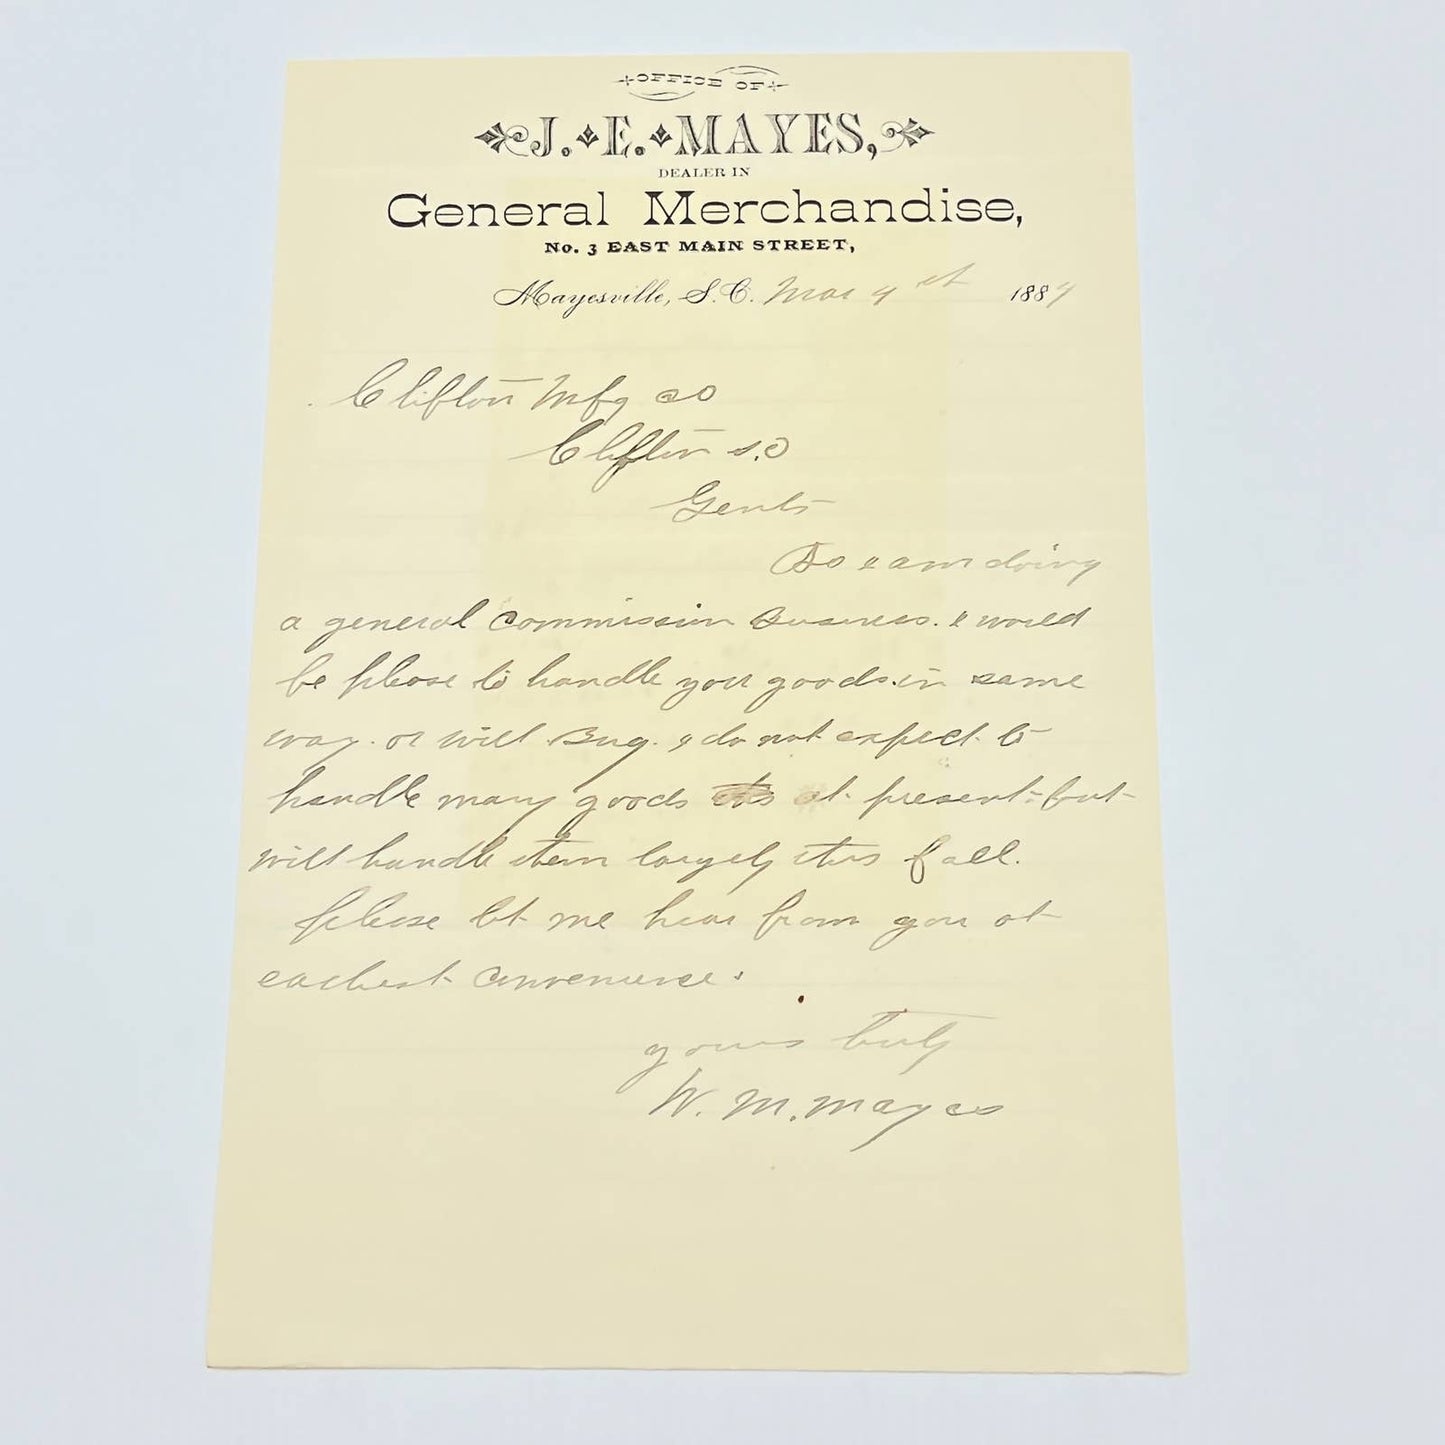 OFFICE OF
J. E. MAYES,
DEALER IN
General Merchandise,
No. 3 EAST MAIN STREET,
Mayesville, S. C. Mar 4th 1884
Clifton Mfg Co
Clifton S.C
Gents
As I am doing
a general Commission Business. I would
be please to handle your goods in same
way. or will Buy. I do not expect to
handle many goods at present but
will handle them largely this fall.
please let me hear from you at
earliest convenience.
yours truly
W. M. Mayes